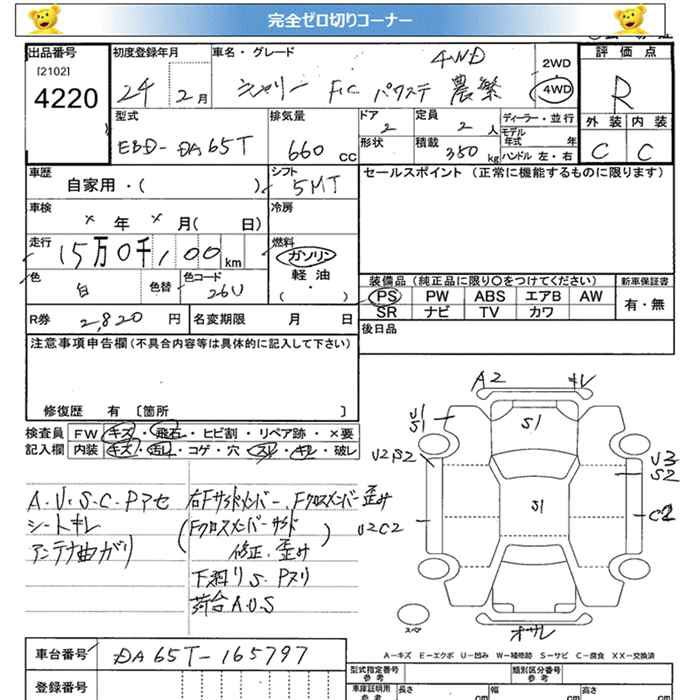 完全ゼロ切りコーナー
出品番号
[2102]
4220
初度登録年月
24 2月
車名・グレード
キャリー F.C パワステ 農繁
4WD
2WD
4WD
評価点
R
外装 内装
C C
型式
EBD-DA65T
排気量
660 CC
ドア
2
形状
定員
2 人
積載
350 kg
ディーラー・並行
モデル年式 年
ハンドル 左・右
車歴
自家用・( )
シフト
5MT
セールスポイント (正常に機能するものに限ります)
車検
× 年 × 月( 日)
冷房
走行
15万0千,100 km
燃料
ガソリン
軽油
・( )
色
白
色替
色コード
26U
装備品 (純正品に限り○をつけてください)
新車保証書
PS PW ABS エアB AW
有・無
SR ナビ TV カワ
R券 2,820 円
名変期限 月 日
後日品
注意事項申告欄 (不具合内容等は具体的に記入して下さい)
修復歴 有 〔箇所 〕
検査員 FW キズ・飛石・ヒビ割・リペア跡・×要
記入欄 内装 キズ・汚レ・コゲ・穴・スレ・キレ・破レ
A・U・S・C・Pアセ
シートキレ
アンテナ曲がり
右Fサイドメンバー、Fクロスメンバー歪み
(Fクロスメンバーサイド
修正、歪み)
下廻りS・Pヌリ
荷台A・U・S
A2
キレ
U1
S1
S1
U2S2
U3
S2
S1
U2C2
C2
スペア
オサレ
A-キズ E-エクボ U-凹み W-補修跡 S-サビ C-腐食 XX-交換済
車台番号 DA65T-165797
登録番号
型式指定番号
参考
類別区分番号
参考
車庫証明用
参考
長さ cm
幅 cm
高さ cm